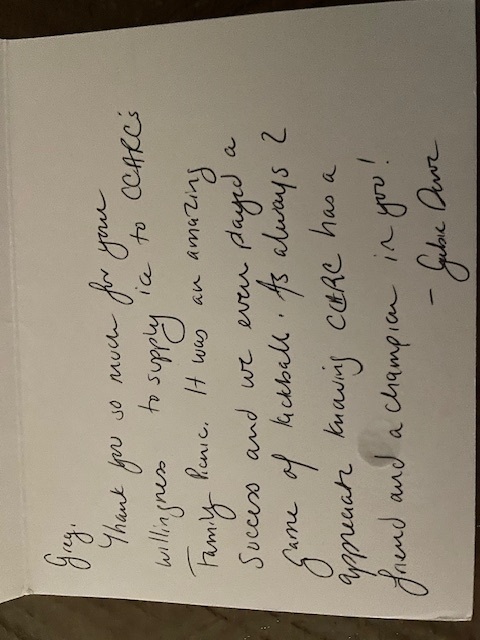 Greg,
Thank you so much for your
willingness to supply ice to CCARC's
Family Picnic. It was an amazing
success and we even played a
game of kickball. As always I
appreciate knowing CCARC has a
friend and a champion in you!
-